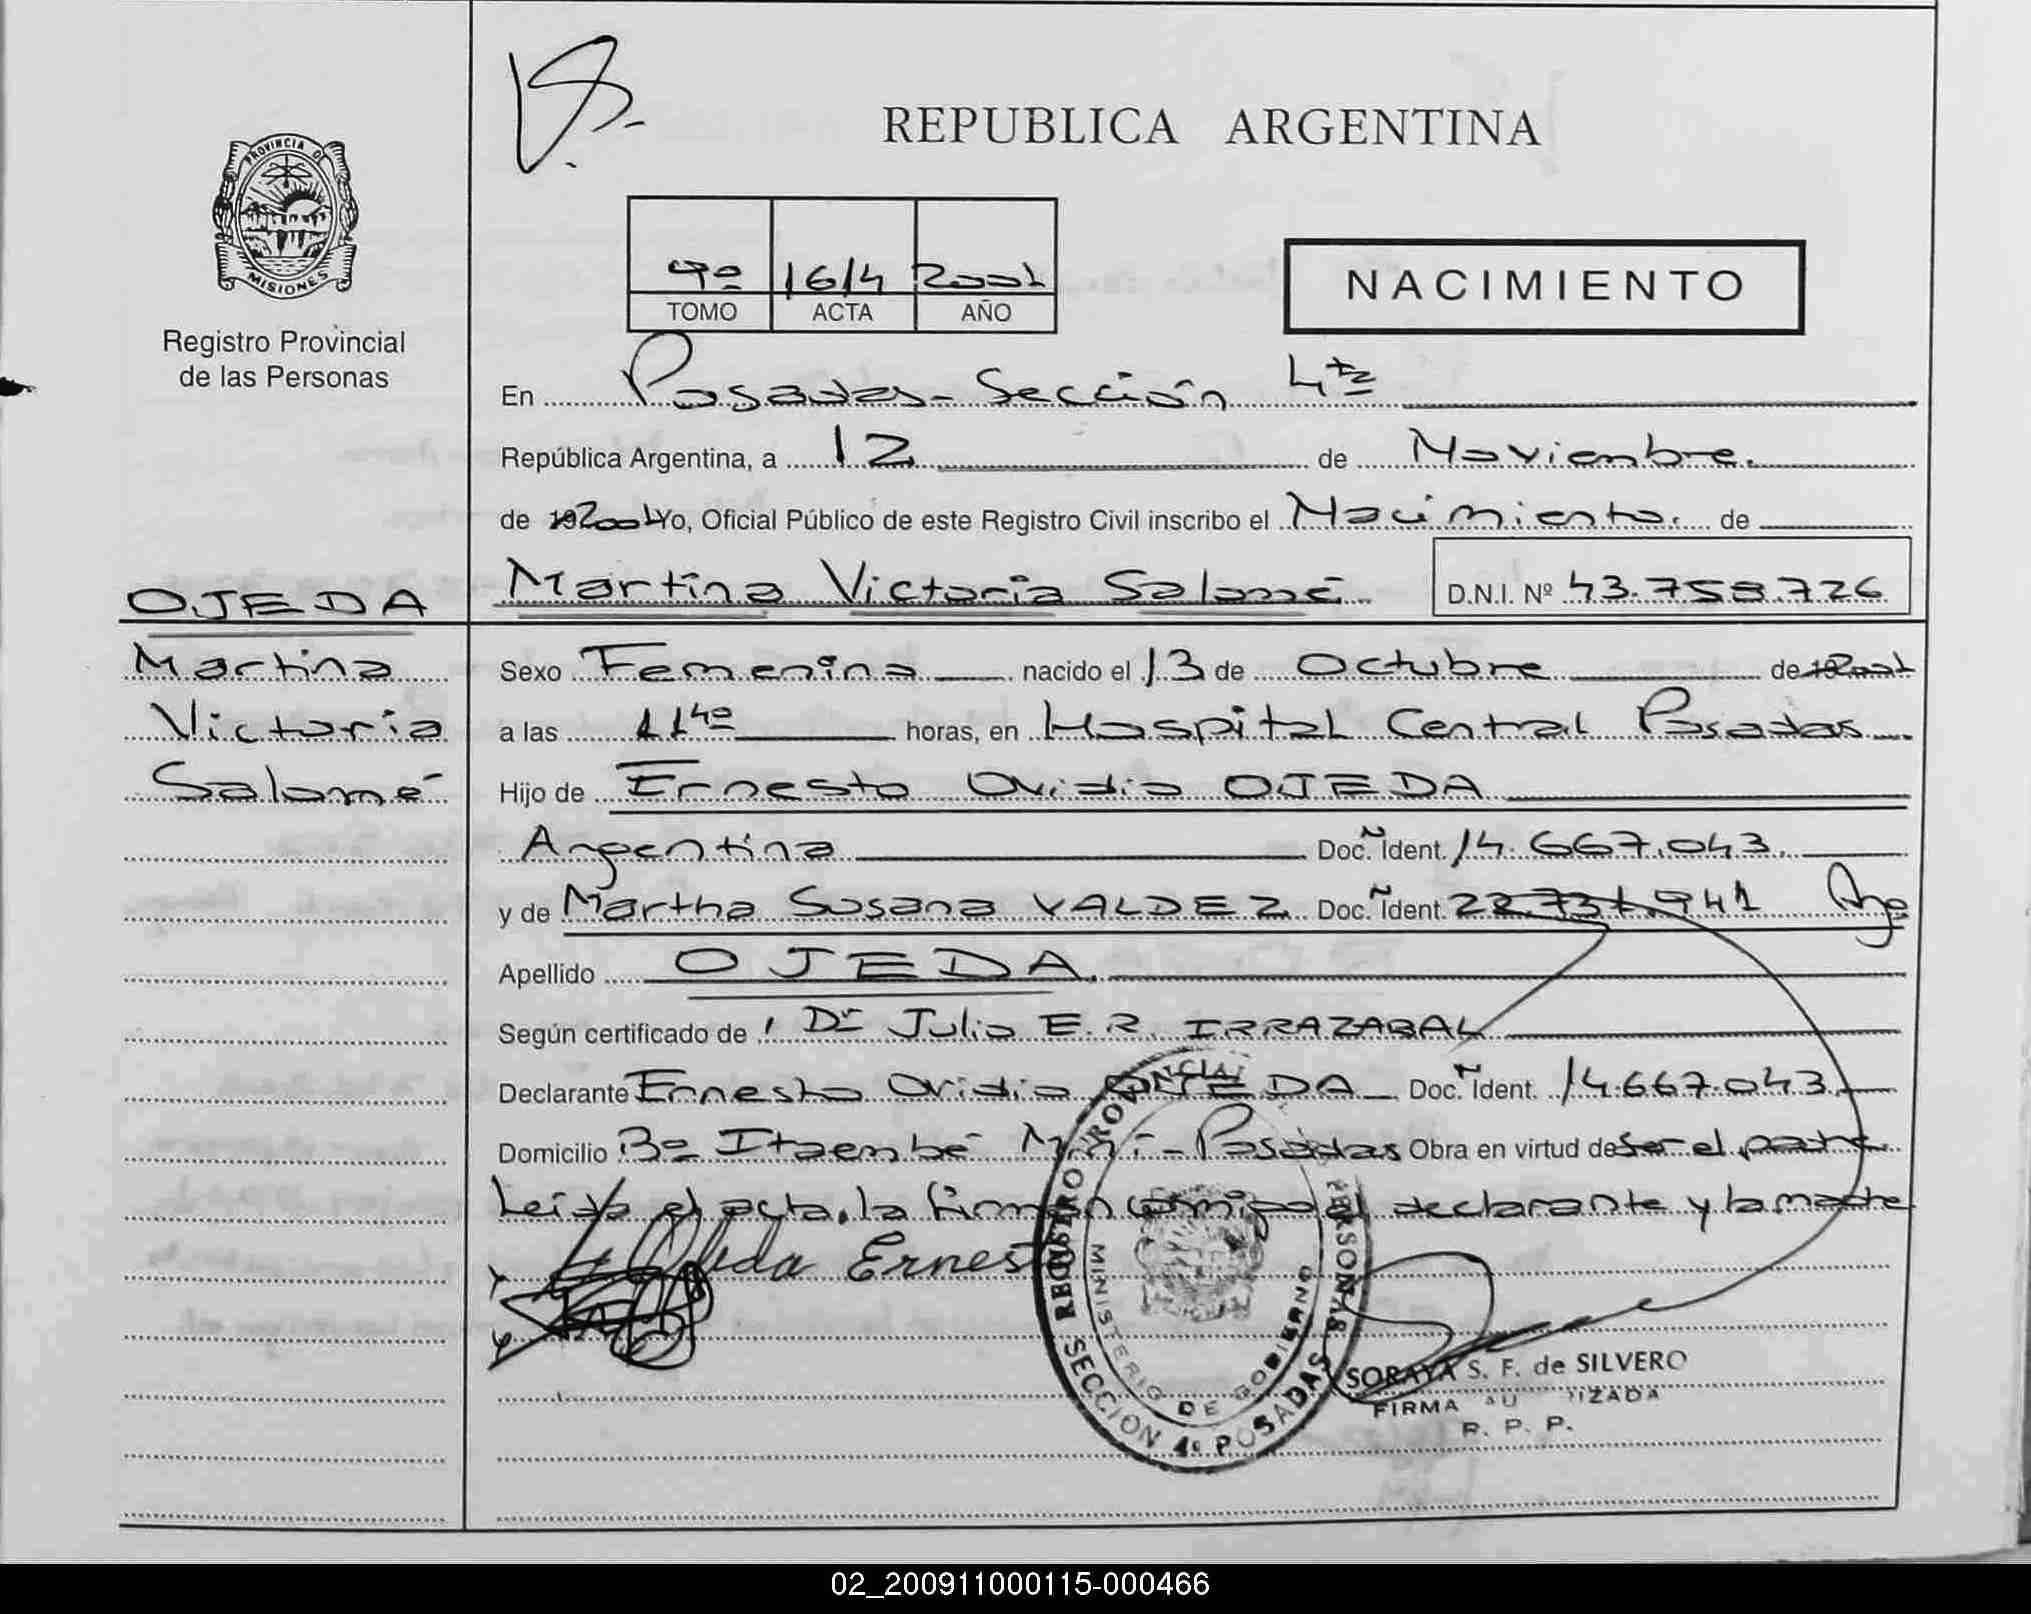 REPUBLICA ARGENTINA
PROVINCIA DE MISIONES
Registro Provincial
de las Personas
4º 1614 2001
TOMO ACTA AÑO
NACIMIENTO
En Posadas - Sección 4ta
República Argentina, a 12 de Noviembre.
de 19 2001 Yo, Oficial Público de este Registro Civil inscribo el Nacimiento. de
Martina Victoria Salomé D.N.I. Nº 43.758.726
OJEDA
Martina
Victoria
Salomé
Sexo Femenino nacido el 13 de Octubre de 19 2001
a las 11 40 horas, en Hospital Central Posadas
Hijo de Ernesto Ovidio OJEDA
Argentino Doc. Ident. 14.667.043.
y de Martha Susana VALDEZ Doc. Ident. 22.731.941 Arg.
Apellido OJEDA.
Según certificado de Dr Julio E.R. IRRAZABAL
Declarante Ernesto Ovidio OJEDA Doc. Ident. 14.667.043.
Domicilio Bº Itaembé Miní - Posadas Obra en virtud de Ser el padre
Leída el acta, la firman conmigo el declarante y la madre
Ojeda Ernesto
REGISTRO PROVINCIAL PERSONAS
MINISTERIO DE GOBIERNO
SECCION 4º POSADAS
SORAYA S. F. de SILVERO
FIRMA AU IZADA
R. P. P.
02_200911000115-000466